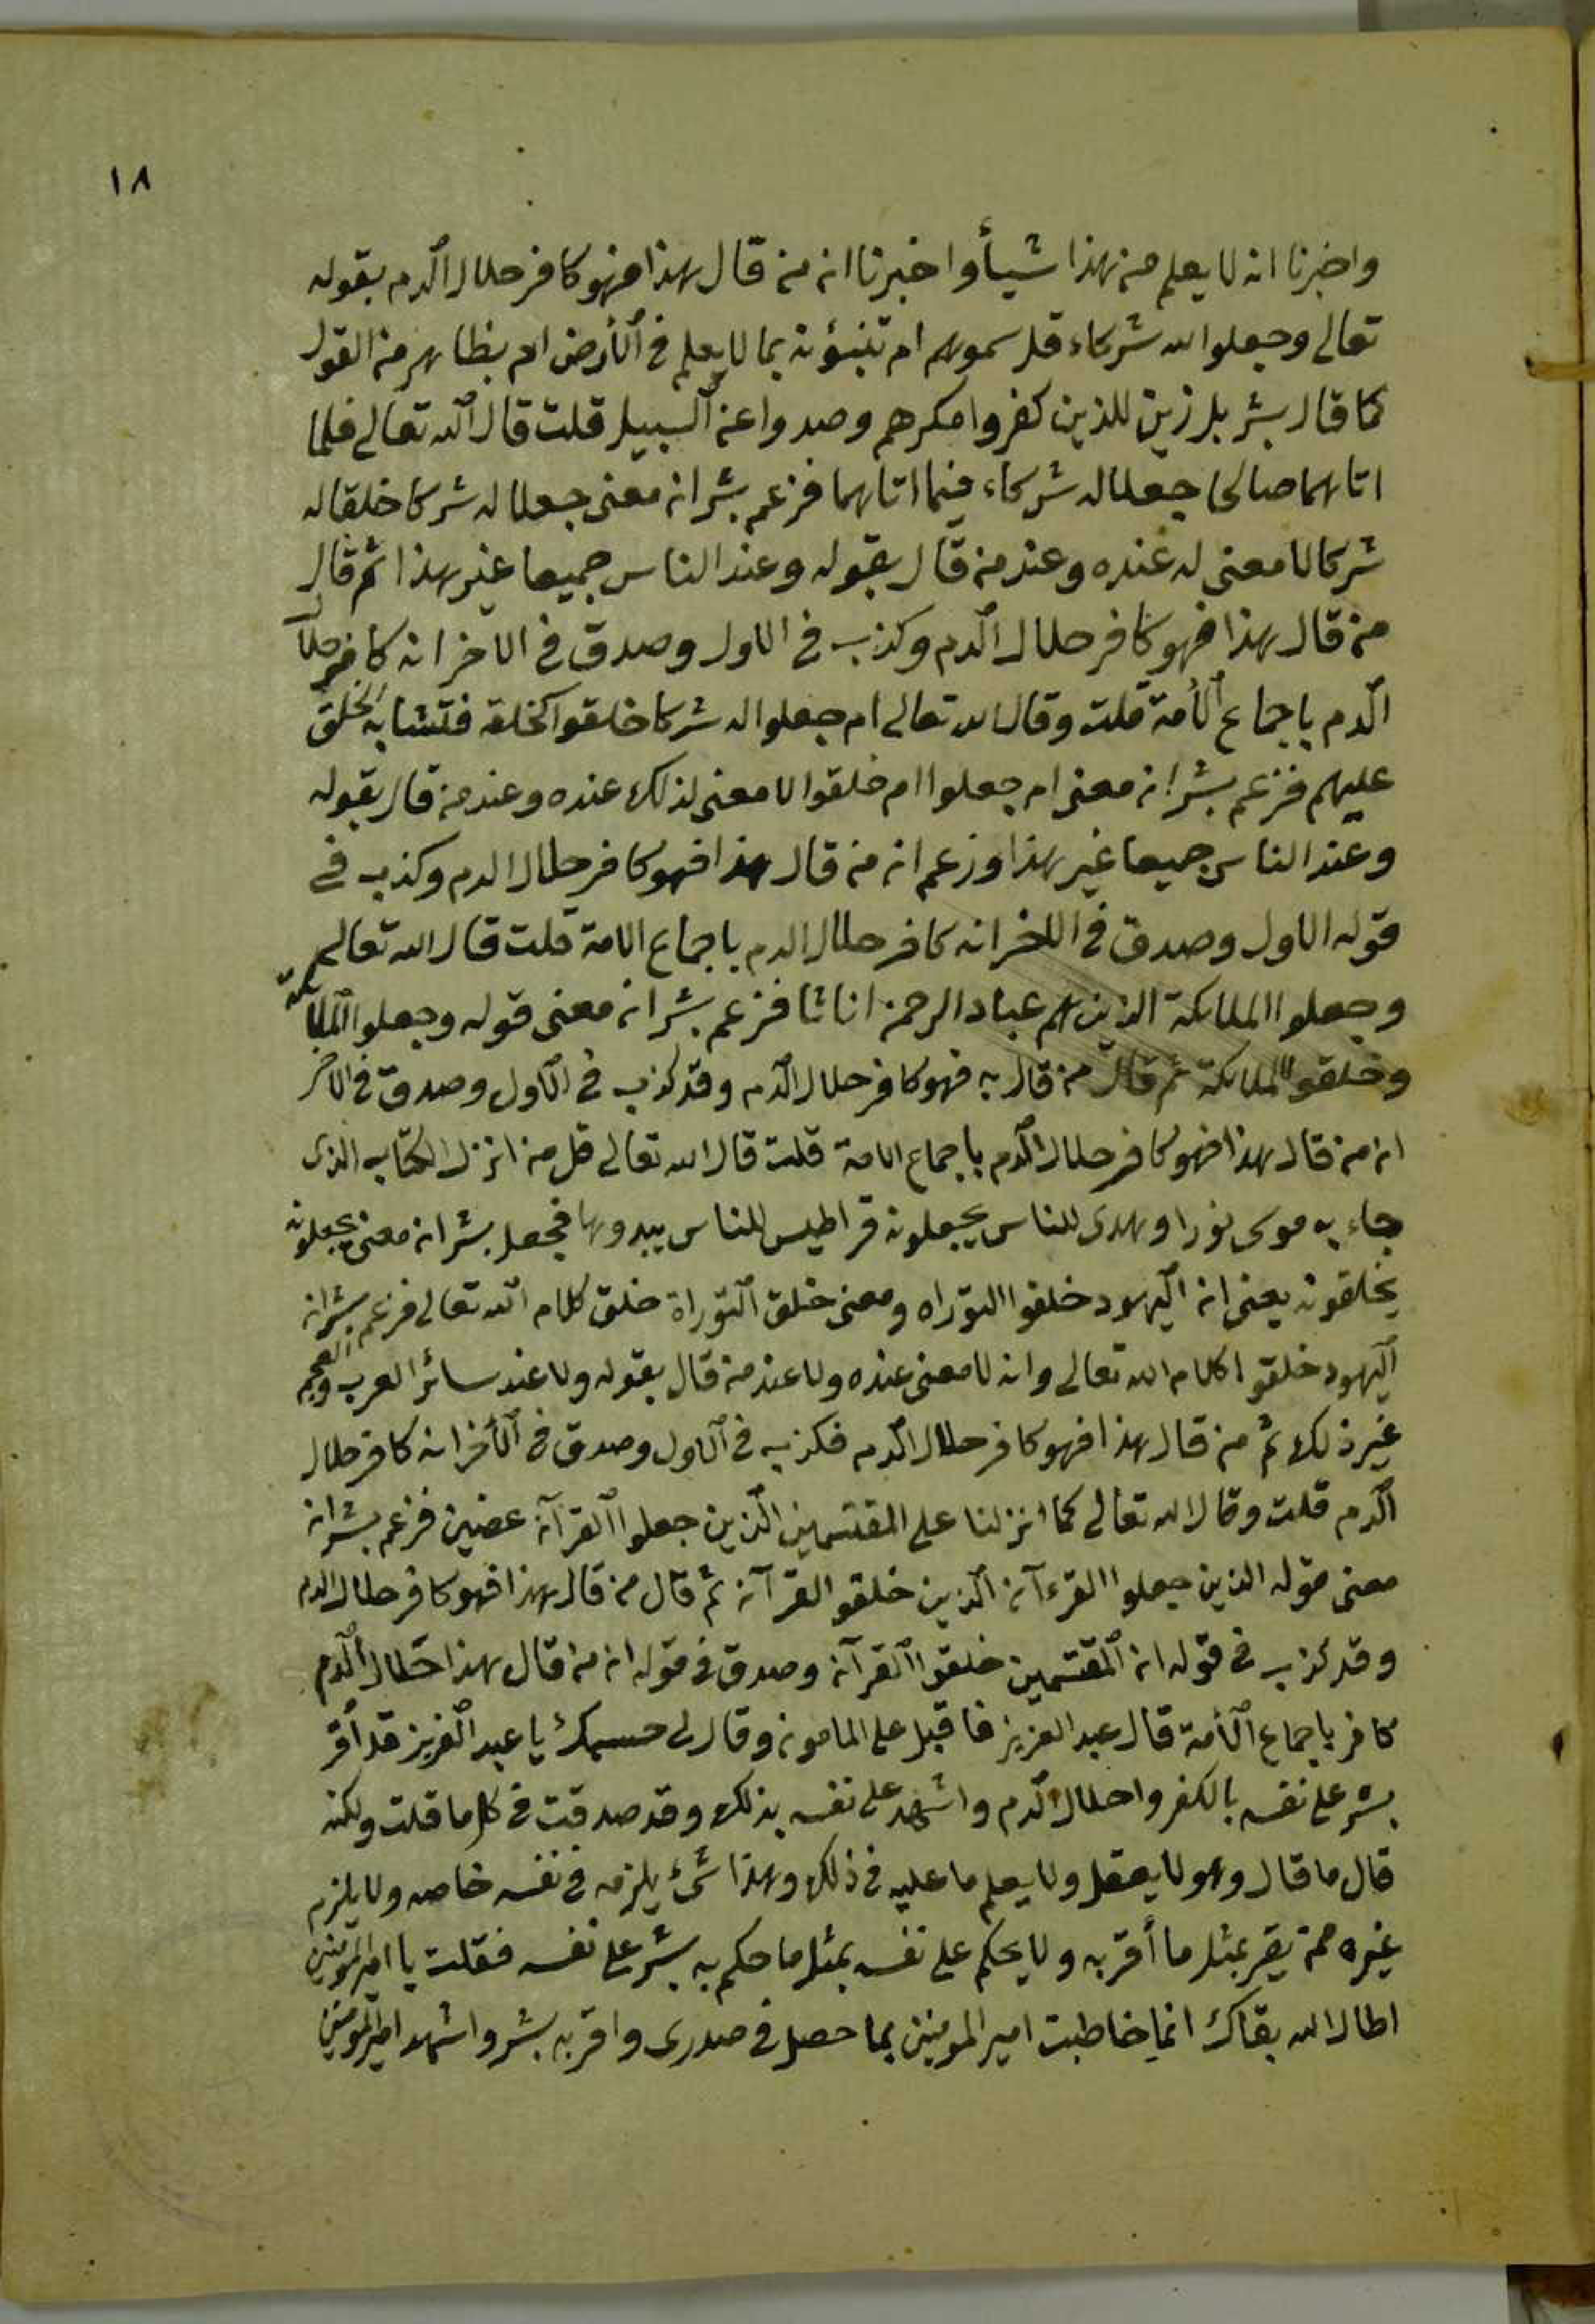 ١٨
واخبرنا انه لا يعلم من هذا شيأ واخبرنا انه من قال بهذا فهو كافر حلال الدم بقوله
تعالى وجعلوا لله شركاء قل سموهم ام تنبؤنه بما لا يعلم في الأرض ام بظاهر من القول
كما قال بشر بل زين للذين كفروا مكرهم وصدوا عن السبيل قلت قال الله تعالى فلما
اتاهما صالحا جعلا له شركاء فيما اتاهما فزعم بشر انه معنى جعلا له شركا خلقا له
شركا لا معنى له عنده وعند من قال بقوله وعند الناس جميعا غير هذا ثم قال
من قال بهذا فهو كافر حلال الدم وكذب في الاول وصدق في الاخر انه كافر حلال
الدم باجماع الأمة قلت وقال الله تعالى ام جعلوا له شركا خلقوا كخلقه فتشابه الخلق
عليهم فزعم بشر انه معنى ام جعلوا ام خلقوا لا معنى لذلك عنده وعند من قال بقوله
وعند الناس جميعا غير هذا وزعم انه من قال بهذا فهو كافر حلال الدم وكذب في
قوله الاول وصدق في الاخر انه كافر حلال الدم باجماع الامة قلت قال الله تعالى
وجعلوا الملائكة الذين هم عباد الرحمن اناثا فزعم بشر انه معنى قوله وجعلوا الملائكة
وخلقوا الملائكة ثم قال من قال به فهو كافر حلال الدم وقد كذب في الاول وصدق في الاخر
انه من قال بهذا فهو كافر حلال الدم باجماع الامة قلت قال الله تعالى قل من انزل الكتاب الذي
جاء به موسى نورا وهدى للناس يجعلونه قراطيس للناس يبدونها فجعل بشر انه معنى يجعلونه
يخلقونه يعنى انه اليهود خلقوا التوراه ومعنى خلق التوراة خلق كلام الله تعالى فزعم بشر انه
اليهود خلقوا كلام الله تعالى وانه لا معنى عنده ولا عند من قال بقوله ولا عند سائر العرب والعجم
غير ذلك ثم من قال بهذا فهو كافر حلال الدم فكذب في الاول وصدق في الأخر انه كافر حلال
الدم قلت وقال الله تعالى كما انزلنا على المقتسمين الذين جعلوا القرآن عضين فزعم بشر انه
معنى قوله الذين جعلوا القرءآن الذين خلقو القرآن ثم قال من قال بهذا فهو كافر حلال الدم
وقد كذب في قوله انه المقتسمين خلقوا القرآن وصدق في قوله انه من قال بهذا حلال الدم
كافر باجماع الأمة قال عبد العزيز فاقبل على المامون وقال لى حسبك يا عبد العزيز قد أقر
بشر على نفسه بالكفر واحلال الدم واشهد على نفسه بذلك وقد صدقت في كل ما قلت ولكنه
قال ما قال وهو لا يعقل ولا يعلم ما عليه في ذلك وهذا شئ يلزمه في نفسه خاصه ولا يلزم
غيره ممن يقر بمثل ما أقر به ولا يحكم على نفسه بمثل ما حكم به بشر على نفسه فقلت يا امير المومنين
اطال الله بقاك انما خاطبت امير المومنين بما حصل في صدرى واقر به بشر واشهد امير المومنين